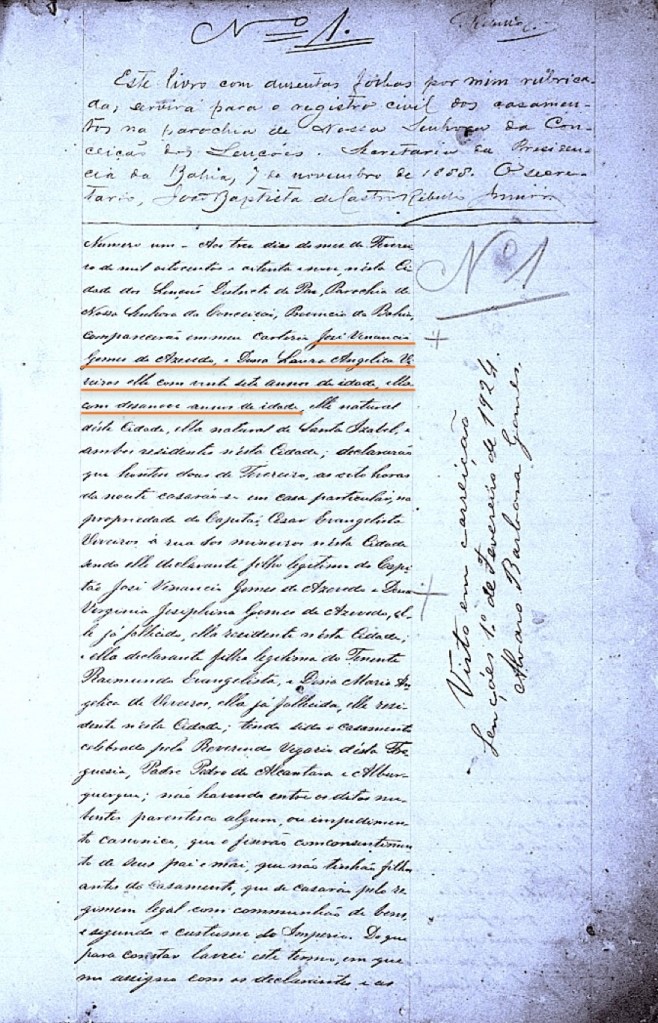 Nº 1.
Ribeiro
Este livro com dusentas folhas por mim rubrica-
das, servirá para o registro civil dos casamen-
tos na parochia de Nossa Senhora da Con-
ceição dos Lençóes. Secretaria da Presiden-
cia da Bahia, 7 de novembro de 1888. O secre-
tario, João Baptista de Castro Rebello Junior.
Numero um – Aos tres dias do mes de Feverei
ro de mil oitocentos e oitenta e nove, nésta Ci
dade dos Lençóes Destricto de Paz, Parochia de
Nossa Senhora da Conceicaõ, Provincia da Bahia,
comparecerão em meu cartorio José Venancio
Gomes de Azevedo, e Dona Laura Angelica Vi
veiros elle com vinte sete annos de idade, ella
com desanove annos de idade, elle natural
désta Cidade, ella natural de Santa Izabel, e
ambos residente nésta Cidade; declararão
que hontem dous de Fevereiro, as oito horas
da noute casarão-se em casa particular, na
propriedade do Capitaõ Cesar Evangelista
Viveiros à rua dos mineiros nésta Cidade
sendo elle declarante filho legitimo do Capi
tão José Venancio Gomes de Azevedo e Dona
Virginia Josephina Gomes de Azevedo, el-
le já falhecido, ella residente nésta Cidade;
e ella declarante filha legitima do Tenente
Raimundo Evangelista, e Dona Maria An
gelica de Viveiros, ella já falhecida, elle resi
dente nésta Cidade; tendo sido o casamento
celebrado pelo Reverendo Vigario désta Fre
guesia, Padre Pedro de Alcantara e Albur-
querque; não havendo entre os ditos nu-
bentes parentesco algum, ou impedimen-
to canonico, que o fiserão com consentimen
to de seus pai e mai, que não tinhão filhos
antes do casamento, que se casarão pelo re
gimem legal com communhão de bens,
e segundo o custume do Imperio. Do que
para constar lavrei este termo, em que
me assigno com os declarantes e as
Nº 1
Visto em correição
Lençóes 1º de Fevereiro de 1924.
Alvaro Barbosa Gomes.